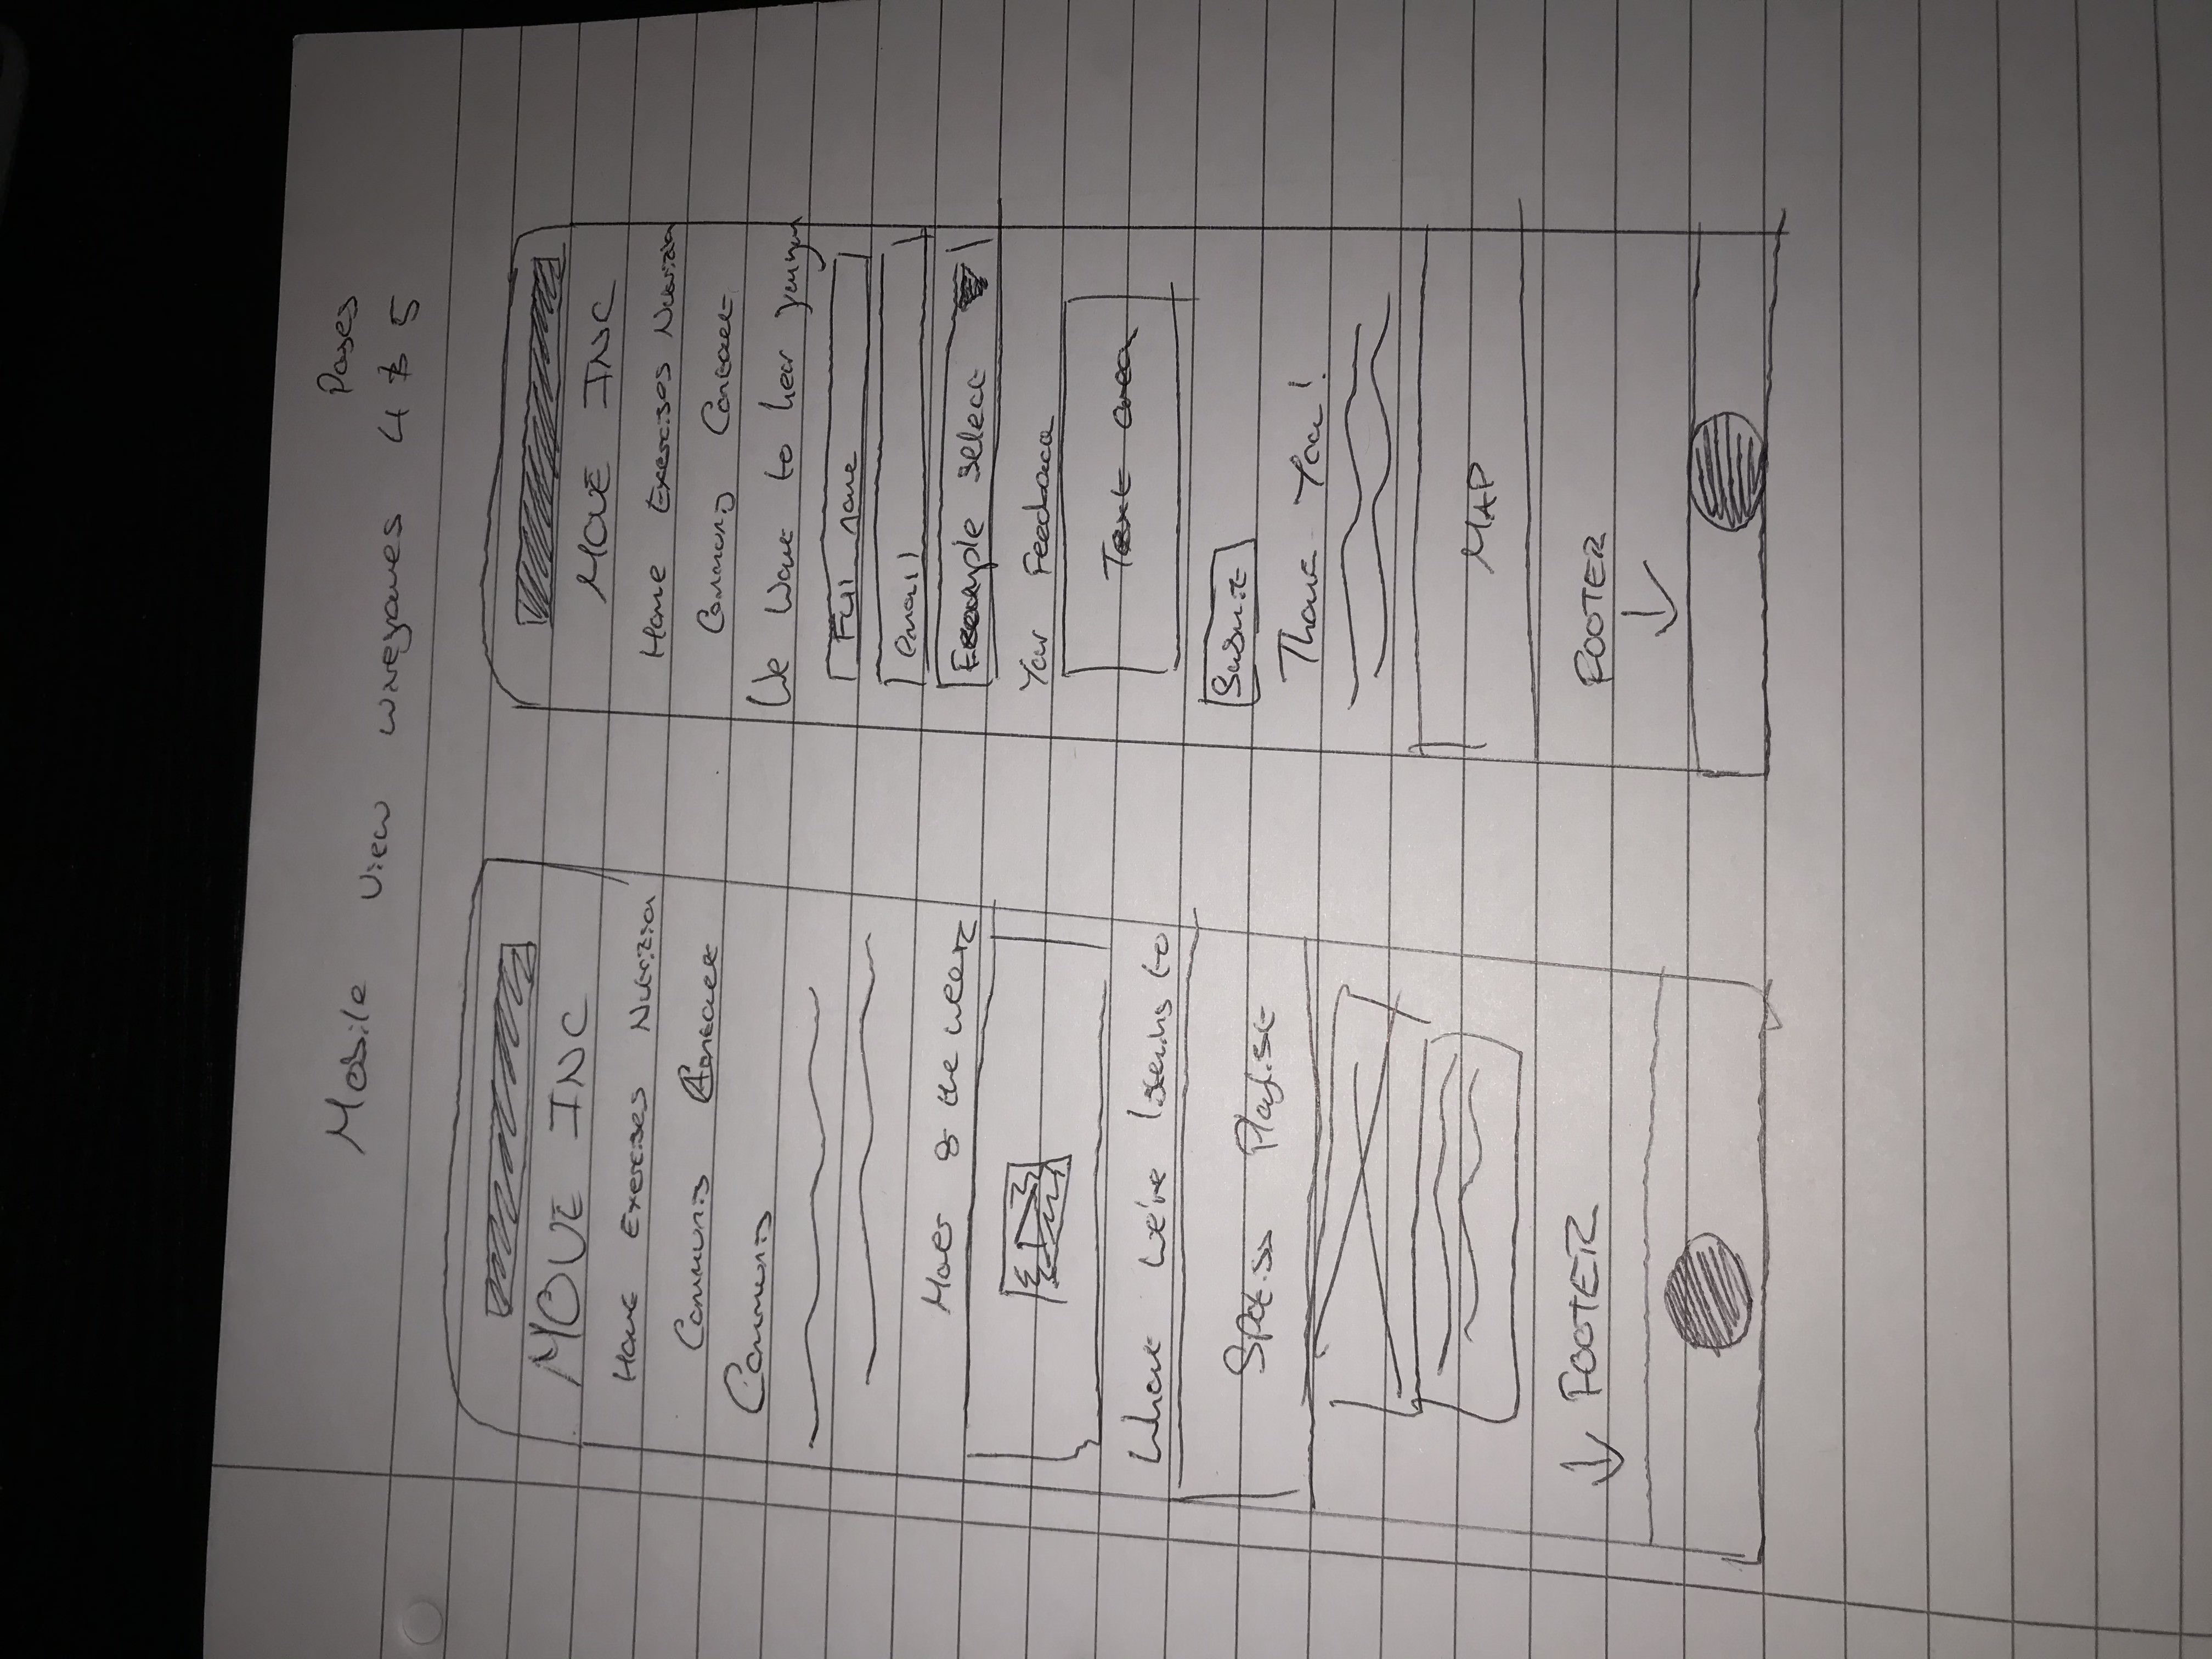 Pages
Mobile View wireframes 4 & 5
MOVE INC
Home Exercises Nutrition
Community Contact
Community
of the week
What we're listening to
Spotify Playlist
FOOTER
MOVE INC
Home Exercises Nutrition
Community Contact
We Want to hear
Full name
email
Example select
Your Feedback
Text area
Submit
Thank You!
MAP
FOOTER